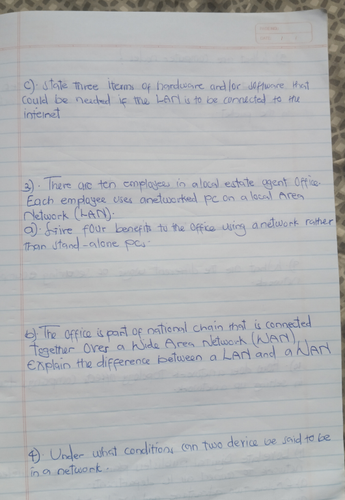 c). State three items of hardware and/or software that
could be needed if the LAN is to be connected to the
internet
3). There are ten employees in a local estate agent office.
Each employee uses a networked PC on a local Area
Network (LAN).
a). Give four benefits to the office using a network rather
than stand-alone PCs.
b). The office is part of national chain that is connected
together over a Wide Area Network (WAN)
Explain the difference between a LAN and a WAN
4). Under what conditions can two device be said to be
in a network.